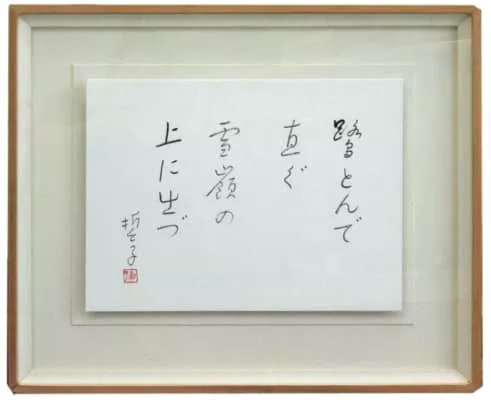 鷺とんで
直ぐ
雪嶺の
上に出づ
哲子